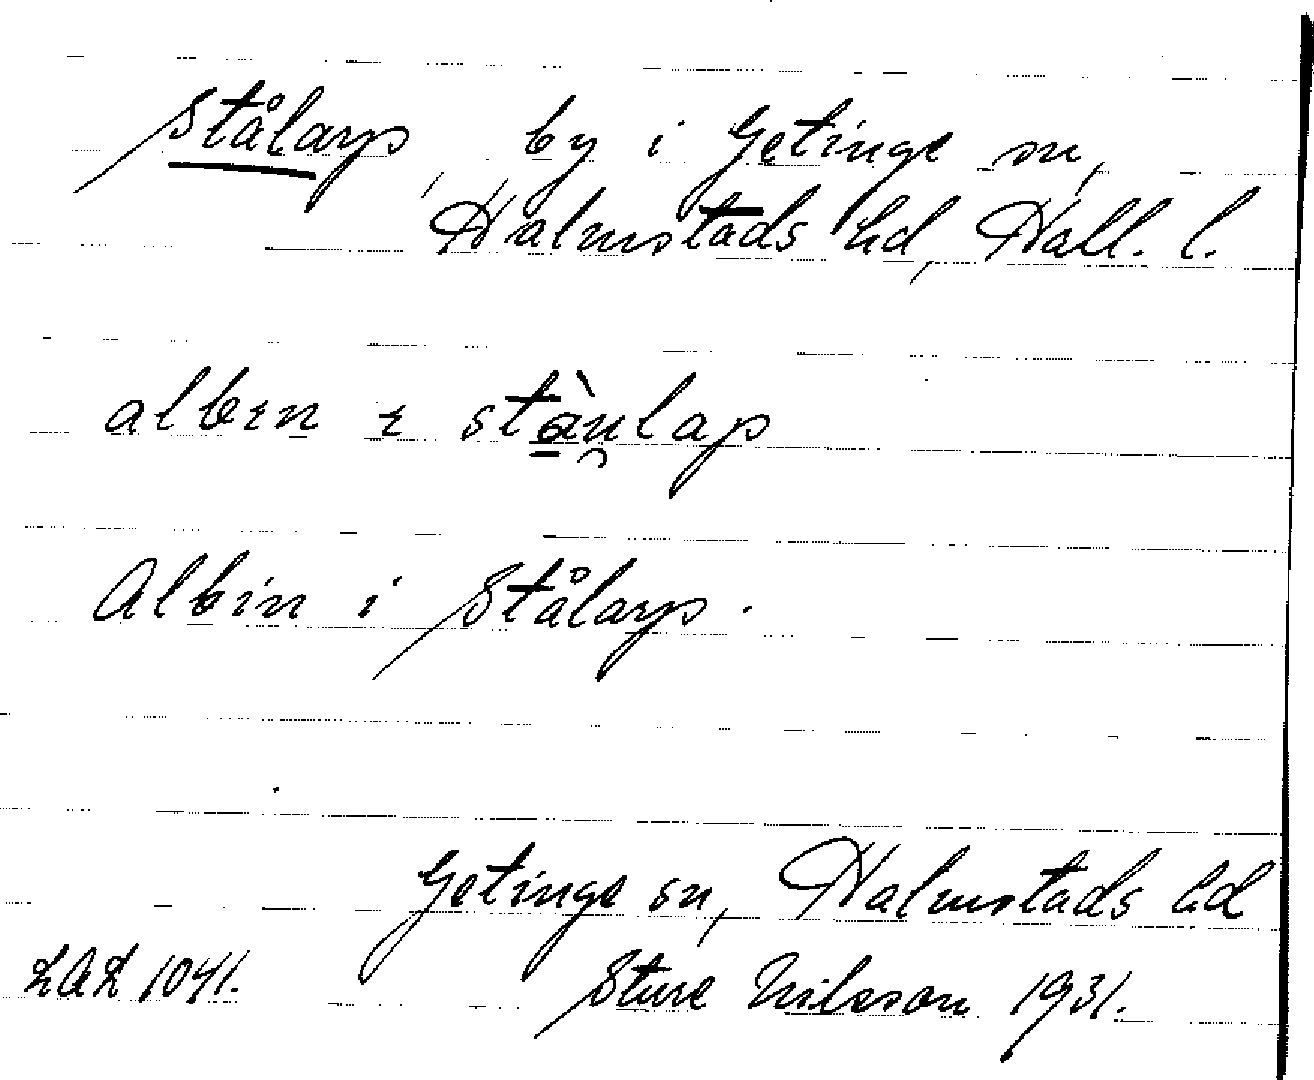 Stålarp, by i Getinge sn,
Halmstads hd, Hall. l.
albɪn ɪ stàu̯lap
Albin i Stålarp.
Getinge sn, Halmstads hd
LAL 1041. Sture Nilsson 1931.